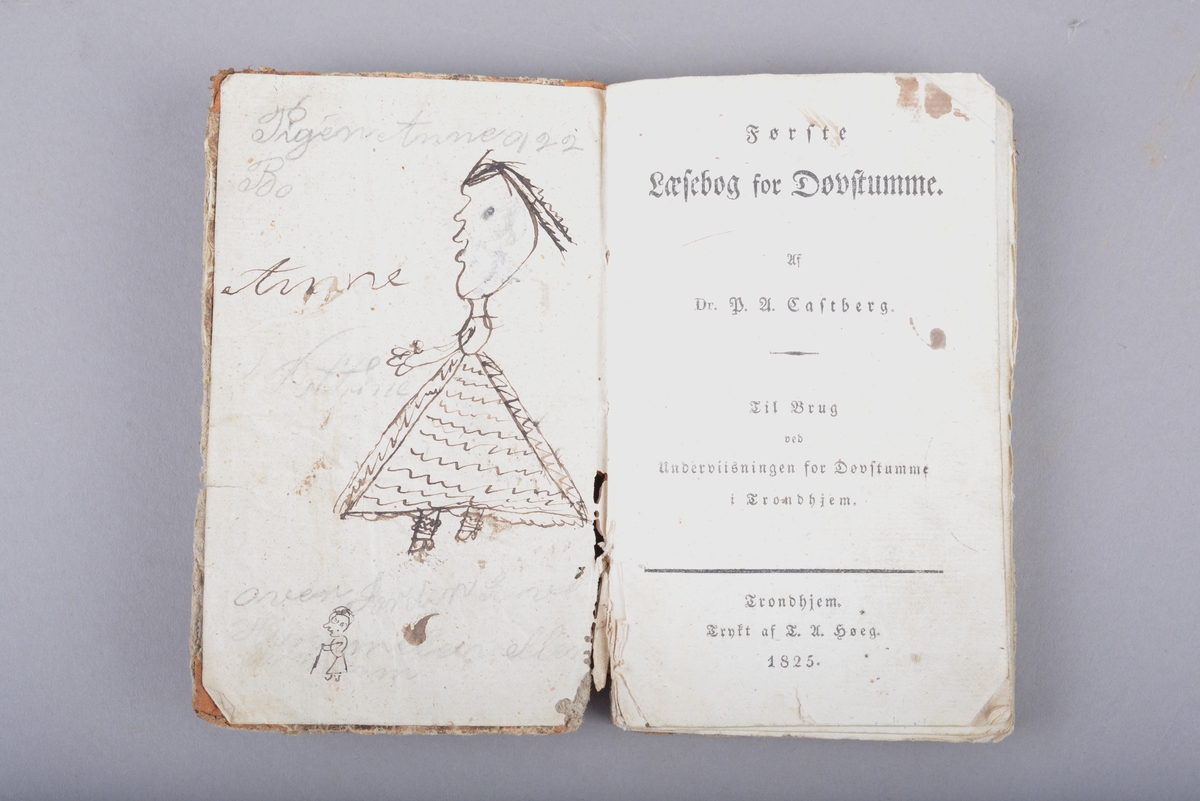 Pigen Anne 922
Bo
Anne
oven
eller
Første
Læsebog for Døvstumme.
Af
Dr. P. A. Castberg.
Til Brug
ved
Underviisningen for Døvstumme
i Trondhjem.
Trondhjem.
Trykt af T. A. Høeg.
1825.